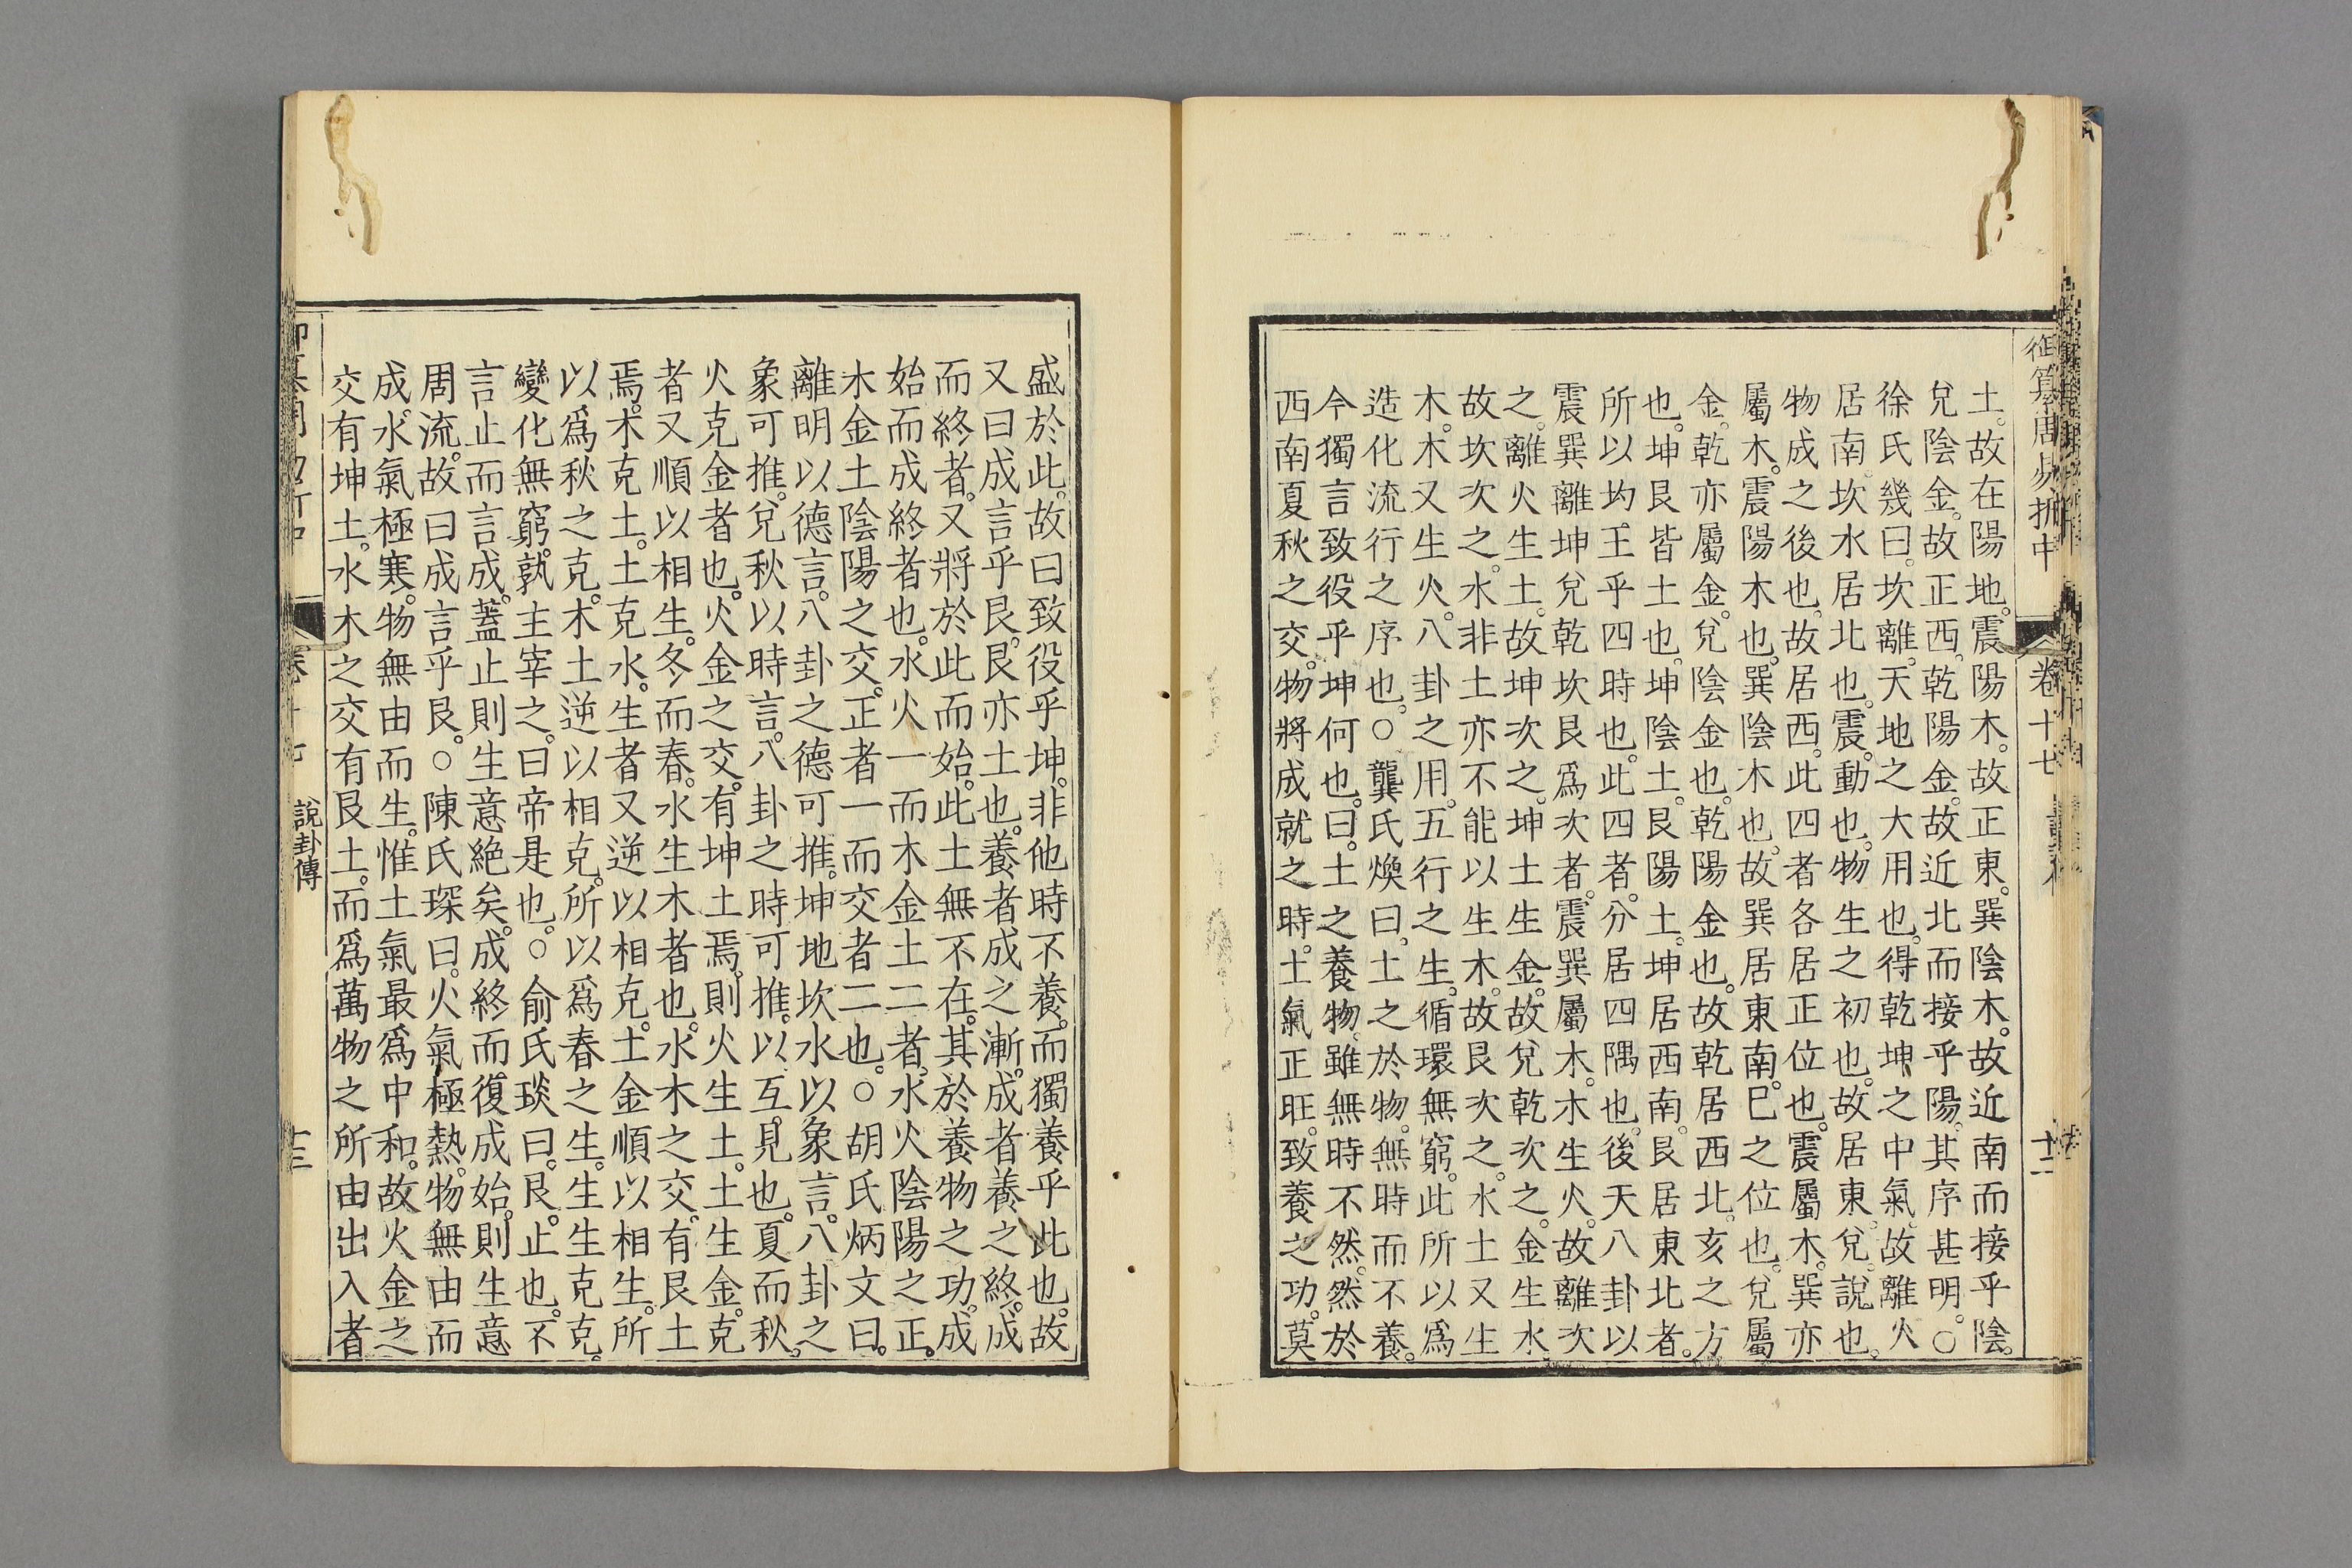 御纂周易折中 卷十七 十二
土。故在陽地。震陽木。故正東。巽陰木。故近南而接乎陰。
兌陰金。故正西。乾陽金。故近北而接乎陽。其序甚明。○
徐氏幾曰。坎離。天地之大用也。得乾坤之中氣。故離火
居南。坎水居北也。震。動也。物生之初也。故居東。兌。說也。
物成之後也。故居西。此四者各居正位也。震屬木。巽亦
屬木。震陽木也。巽陰木也。故巽居東南。巳之位也。兌屬
金。乾亦屬金。兌陰金也。乾陽金也。故乾居西北。亥之方
也。坤艮皆土也。坤陰土。艮陽土。坤居西南。艮居東北者。
所以均王乎四時也。此四者。分居四隅也。後天八卦以
震巽離坤兌乾坎艮爲次者。震巽屬木。木生火。故離次
之。離火生土。故坤次之。坤土生金。故兌乾次之。金生水
故坎次之。水非土亦不能以生木。故艮次之。水土又生
木。木又生火。八卦之用。五行之生。循環無窮。此所以爲
造化流行之序也。○龔氏煥曰。土之於物。無時而不養。
今獨言致役乎坤何也。曰。土之養物。雖無時不然。然於
西南夏秋之交。物將成就之時。土氣正旺。致養之功。莫
盛於此。故曰致役乎坤。非他時不養。而獨養乎此也。故
又曰成言乎艮。艮亦土也。養者成之漸。成者養之終。成
而終者。又將於此而始。此土無不在。其於養物之功。成
始而成終者也。水火一而木金土二者。水火陰陽之正。
木金土陰陽之交。正者一而交者二也。○胡氏炳文曰。
離明以德言。八卦之德可推。坤地坎水以象言。八卦之
象可推。兌秋以時言。八卦之時可推。以互見也。夏而秋。
火克金者也。火金之交。有坤土焉。則火生土。土生金。克
者又順以相生。冬而春。水生木者也。水木之交。有艮土
焉。木克土。土克水。生者又逆以相克。土金順以相生。所
以爲秋之克。木土逆以相克。所以爲春之生。生生克克。
變化無窮。孰主宰之。曰帝是也。○俞氏琰曰。艮。止也。不
言止而言成。蓋止則生意絕矣。成終而復成始。則生意
周流。故曰成言乎艮。○陳氏琛曰。火氣極熱。物無由而
成。水氣極寒。物無由而生。惟土氣最爲中和。故火金之
交有坤土。水木之交有艮土。而爲萬物之所由出入者
說卦傳 十三